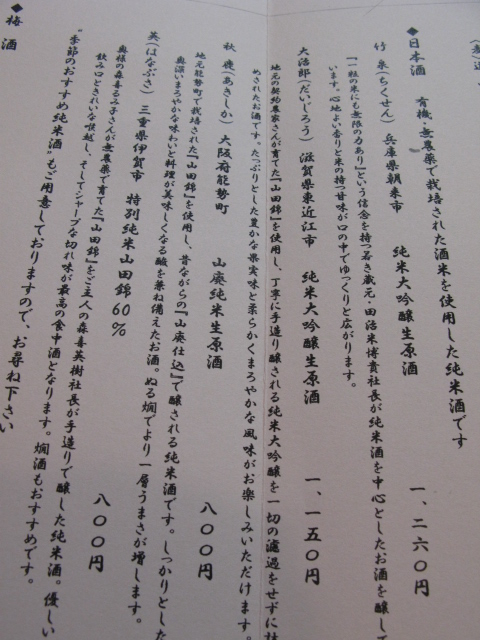 ◆日本酒 有機・無農薬で栽培された酒米を使用した純米酒です
竹泉(ちくせん) 兵庫県朝来市 純米大吟醸生原酒 一、二六〇円
『一粒の米にも無限の力あり』という信念を持つ若き蔵元・田治米博貴社長が純米酒を中心としたお酒を醸して
います。心地よい香りと米の持つ甘味が口の中でゆっくりと広がります。
大治郎(だいじろう) 滋賀県東近江市 純米大吟醸生原酒 一、一五〇円
地元の契約農家さんが育てた『山田錦』を使用し、丁寧に手造り醸される純米大吟醸を一切の濾過をせずに
めされたお酒です。たっぷりとした豊かな果実味と柔らかくまろやかな風味がお楽しみいただけます。
秋鹿(あきしか) 大阪府能勢町 山廃純米生原酒 八〇〇円
地元能勢町で栽培された『山田錦』を使用し、昔ながらの『山廃仕込』で醸される純米酒です。しっかりとした
奥深いまろやかな味わいと料理が美味しくなる酸を兼ね備えたお酒。ぬる燗でより一層うまさが増します。
英(はなぶさ) 三重県伊賀市 特別純米山田錦60% 八〇〇円
奥様の森喜るみ子さんが無農薬で育てた『山田錦』をご主人の森喜英樹社長が手造りで醸した純米酒。優しい
飲み口ときれいな後味し、そしてシャープな切れ味が最高の食中酒となります。燗酒もおすすめです。
“季節のおすすめ純米酒”もご用意しておりますので、お尋ね下さい
◆梅酒